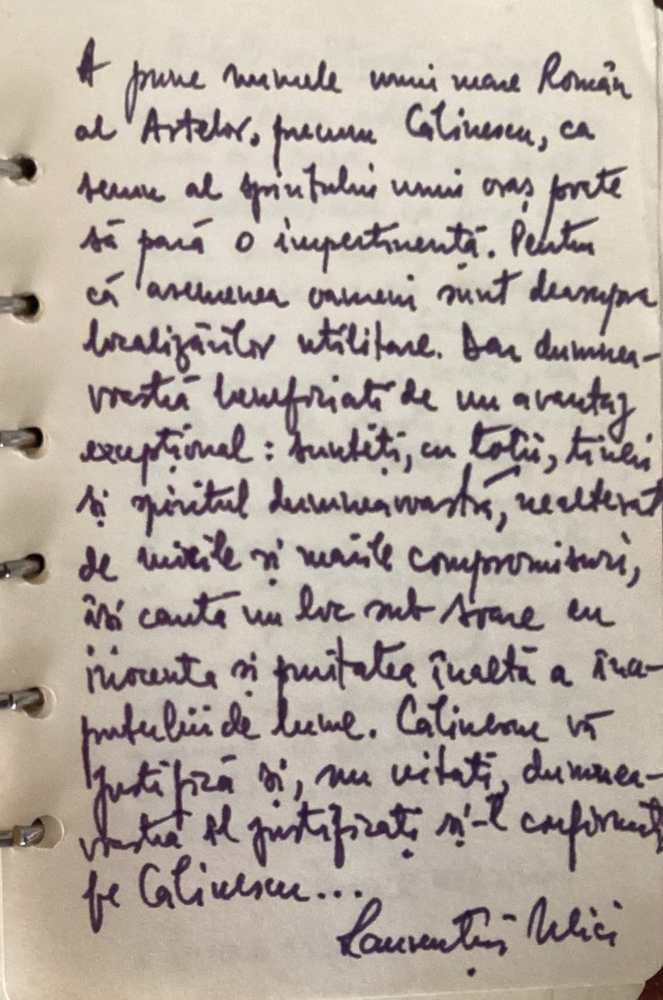 A pune numele unui mare Român
al Artelor, precum Călinescu, ca
semn al spiritului unui oraș poate
să pară o impertinență. Pentru
că asemenea oameni sunt deasupra
localizărilor utilitare. Dar dumnea-
voastră beneficiați de un avantaj
excepțional: sunteți, cu toții, tineri
și spiritul dumneavoastră, nealterat
de micile și marile compromisuri,
își caută un loc sub soare cu
inocența și puritatea înaltă a înce-
putului de lume. Călinescu vă
justifică și, nu uitați, dumnea-
voastră îl justificați și-l confirmați
pe Călinescu...
Laurențiu Ulici